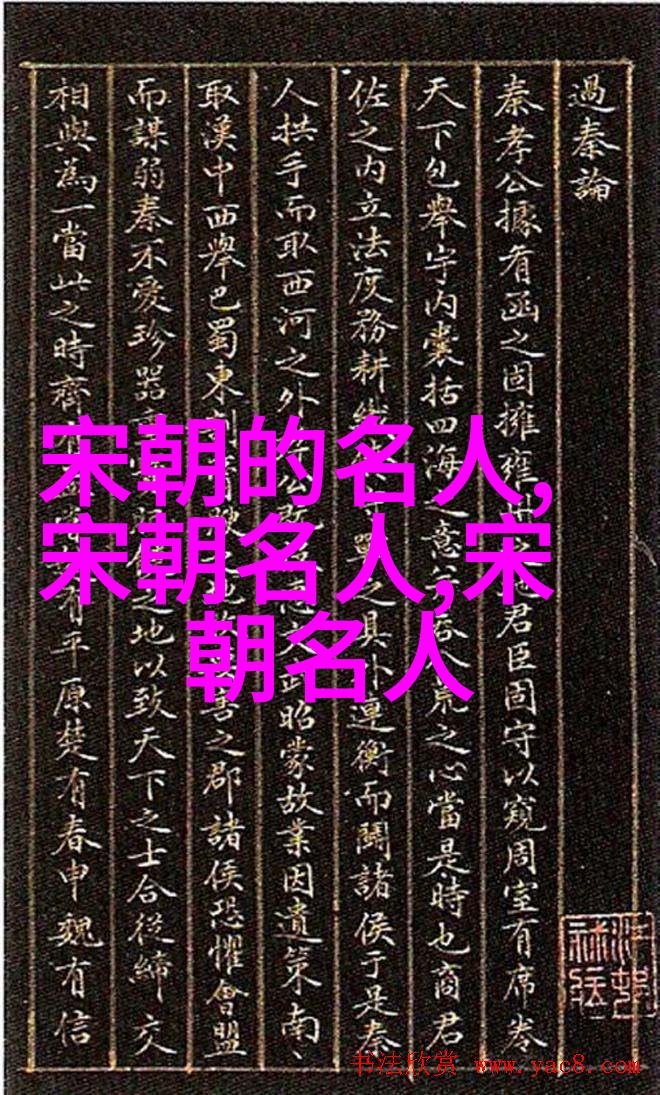 過秦論
秦孝公據有函之固擁雍君臣固守以窺周室有席卷
天下包舉宇内囊括四海之意荒之心當是時也商君
佐之内立法度務耕之具外連衡而鬪諸侯于是秦
人拱手而取西河之外昭蒙故業因遺策南
取漢中西舉巴蜀東害之郡諸侯恐懼會盟
而謀弱秦不愛珍器之地以致天下之士合從締交
相與爲一當此之時齊有平原楚有春申魏有信
宋朝的名人,
宋朝名人,宋
朝名人
书法欣赏 www.yac8.com